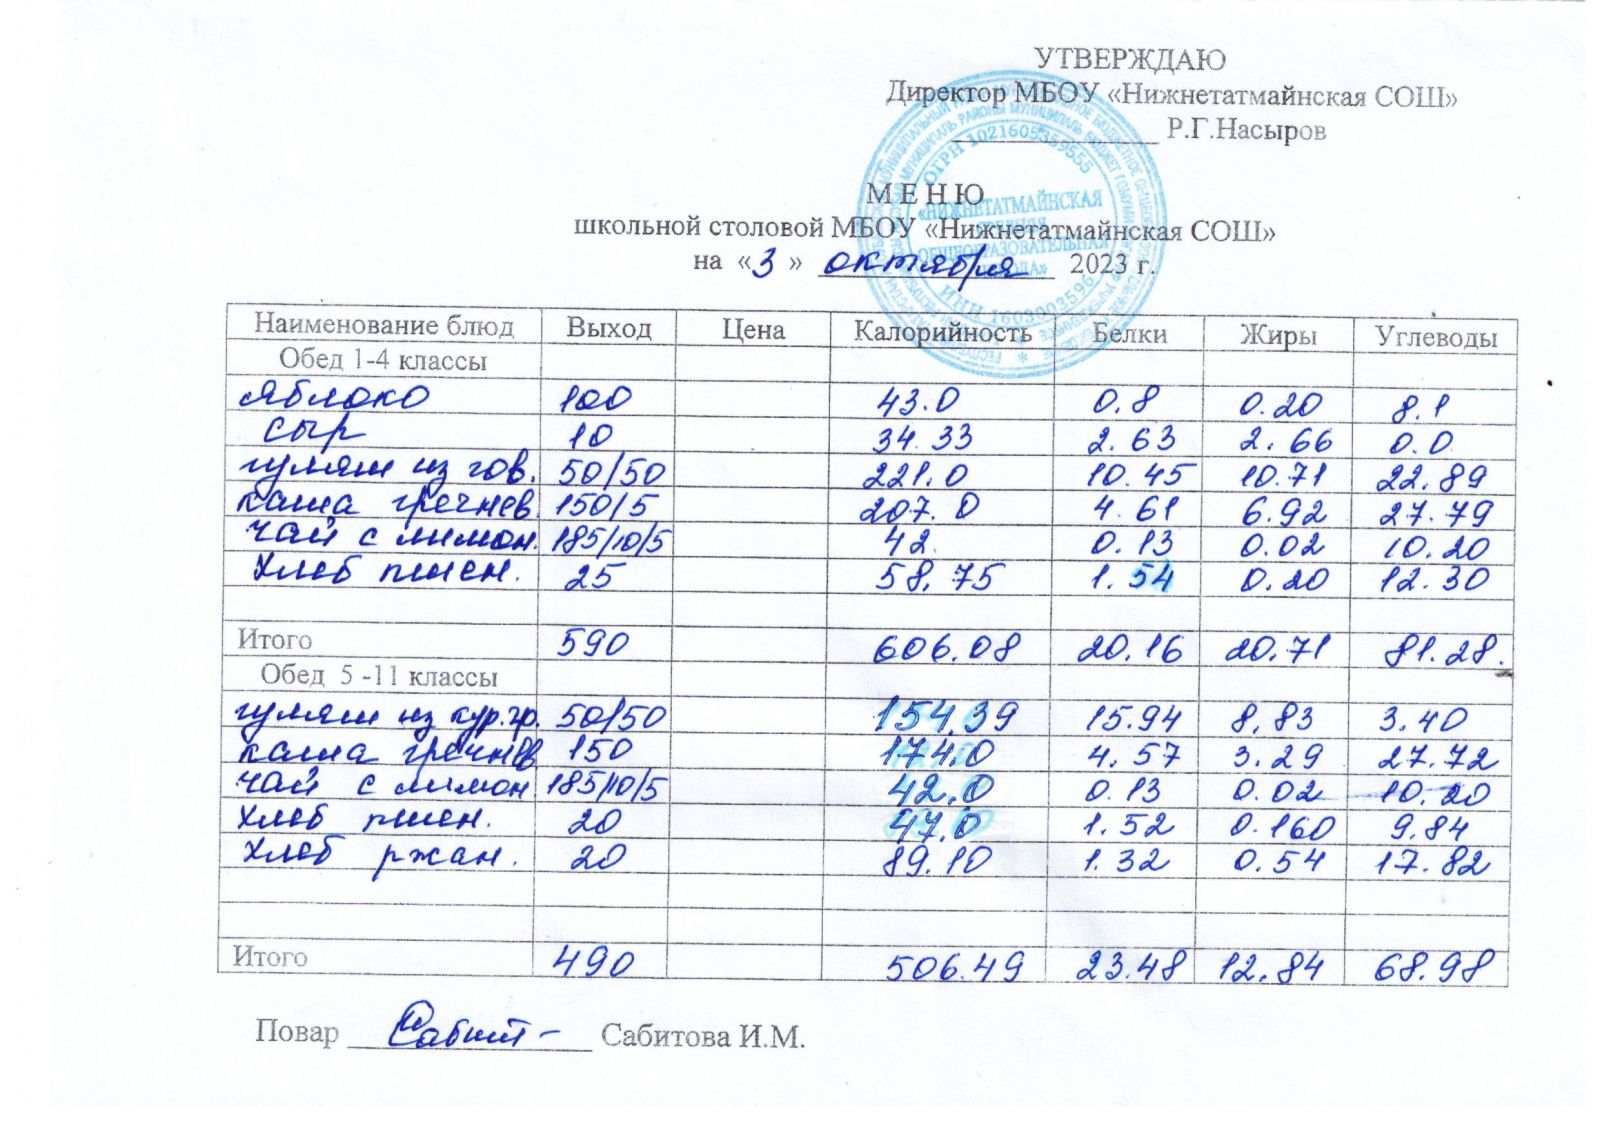 УТВЕРЖДАЮ
Директор МБОУ «Нижнетатмайнская СОШ»
____________ Р.Г.Насыров
М Е Н Ю
школьной столовой МБОУ «Нижнетатмайнская СОШ»
на «3» октября 2023 г.
Наименование блюд Выход Цена Калорийность Белки Жиры Углеводы
Обед 1-4 классы
яблоко 100 43.0 0.8 0.20 8.1
сыр 10 34.33 2.63 2.66 0.0
гуляш из гов. 50/50 221.0 10.45 10.71 22.89
каша гречнев. 150/5 207.0 4.61 6.92 27.79
чай с лимон. 185/10/5 42. 0.13 0.02 10.20
хлеб пшен. 25 58.75 1.54 0.20 12.30
Итого 590 606.08 20.16 20.71 81.28.
Обед 5 -11 классы
гуляш из кур.гр. 50/50 154.39 15.94 8.83 3.40
каша гречнев 150 174.0 4.57 3.29 27.72
чай с лимон 185/10/5 42.0 0.13 0.02 10.20
хлеб пшен. 20 47.0 1.52 0.160 9.84
хлеб ржан. 20 89.10 1.32 0.54 17.82
Итого 490 506.49 23.48 12.84 68.98
Повар Сабит- Сабитова И.М.
ОГРН 1021605359555
«НИЖНЕТАТМАЙНСКАЯ
СРЕДНЯЯ
ОБЩЕОБРАЗОВАТЕЛЬНАЯ
ИНН 1603003596